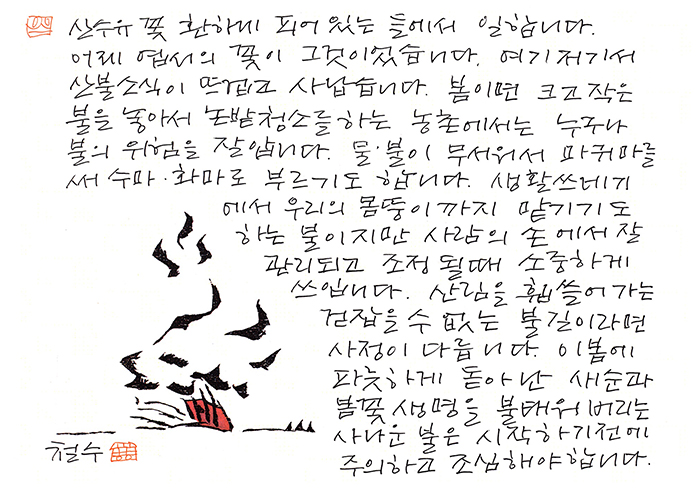 산수유 꽃 환하게 피어 있는 들에서 일합니다.
어제 엽서의 꽃이 그것이었습니다. 여기저기서
산불소식이 뜨겁고 사납습니다. 봄이면 크고 작은
불을 놓아서 논밭청소를 하는 농촌에서는 누구나
불의 위험을 잘압니다. 물·불이 무서워서 마귀마를
써 수마·화마로 부르기도 합니다. 생활쓰레기
에서 우리의 몸뚱이까지 맡기기도
하는 불이지만 사람의 손에서 잘
관리되고 조정될때 소중하게
쓰입니다. 산림을 휩쓸어가는
걷잡을 수 없는 불길이라면
사정이 다릅니다. 이봄에
파릇하게 돋아난 새순과
봄꽃 생명을 불태워버리는
사나운 불은 시작하기전에
주의하고 조심해야합니다.
철수